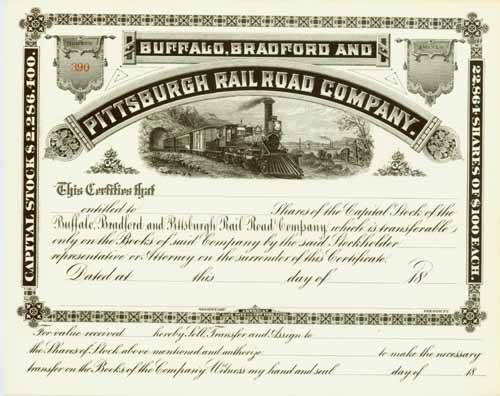 NUMBER
390
SHARES
BUFFALO, BRADFORD AND
PITTSBURGH RAIL ROAD COMPANY.
CAPITAL STOCK $2,286,400.
22,864 SHARES OF $100 EACH.
This Certifies that
entitled to Shares of the Capital Stock of the
Buffalo, Bradford and Pittsburgh Rail Road Company, which is transferable
only on the Books of said Company by the said Stockholder
representative or Attorney on the surrender of this Certificate.
Dated at this day of 18
For value received hereby Sell, Transfer and Assign to
the Shares of Stock above mentioned and authorize to make the necessary
transfer on the Books of the Company. Witness my hand and seal day of 18